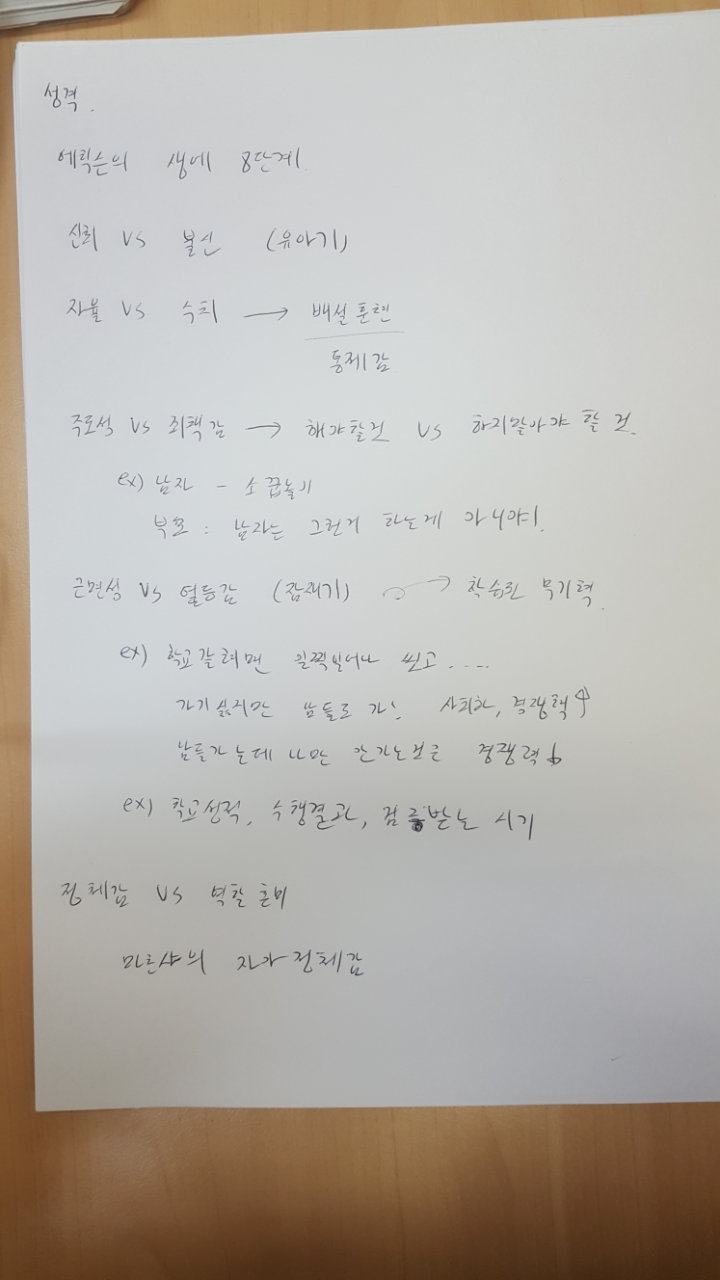 성격.
에릭슨의 생에 8단계.
신뢰 VS 불신 (유아기)
자율 VS 수치 → 배설훈련
통제감
주도성 VS 죄책감 → 해야할것 VS 하지말아야 할 것.
ex) 남자 - 소꿉놀이
부모 : 남자는 그런거 하는게 아니야!
근면성 VS 열등감 (잠재기) → 학습된 무기력.
ex) 학교갈려면 일찍일어나 씻고....
가기싫지만 남들로 가; 사회화, 경쟁력↑
남들가는데 나만 안가는것은 경쟁력↓
ex) 학교성적, 수행결과, 검증받는 시기
정체감 VS 역할 혼미
마르샤의 자아정체감